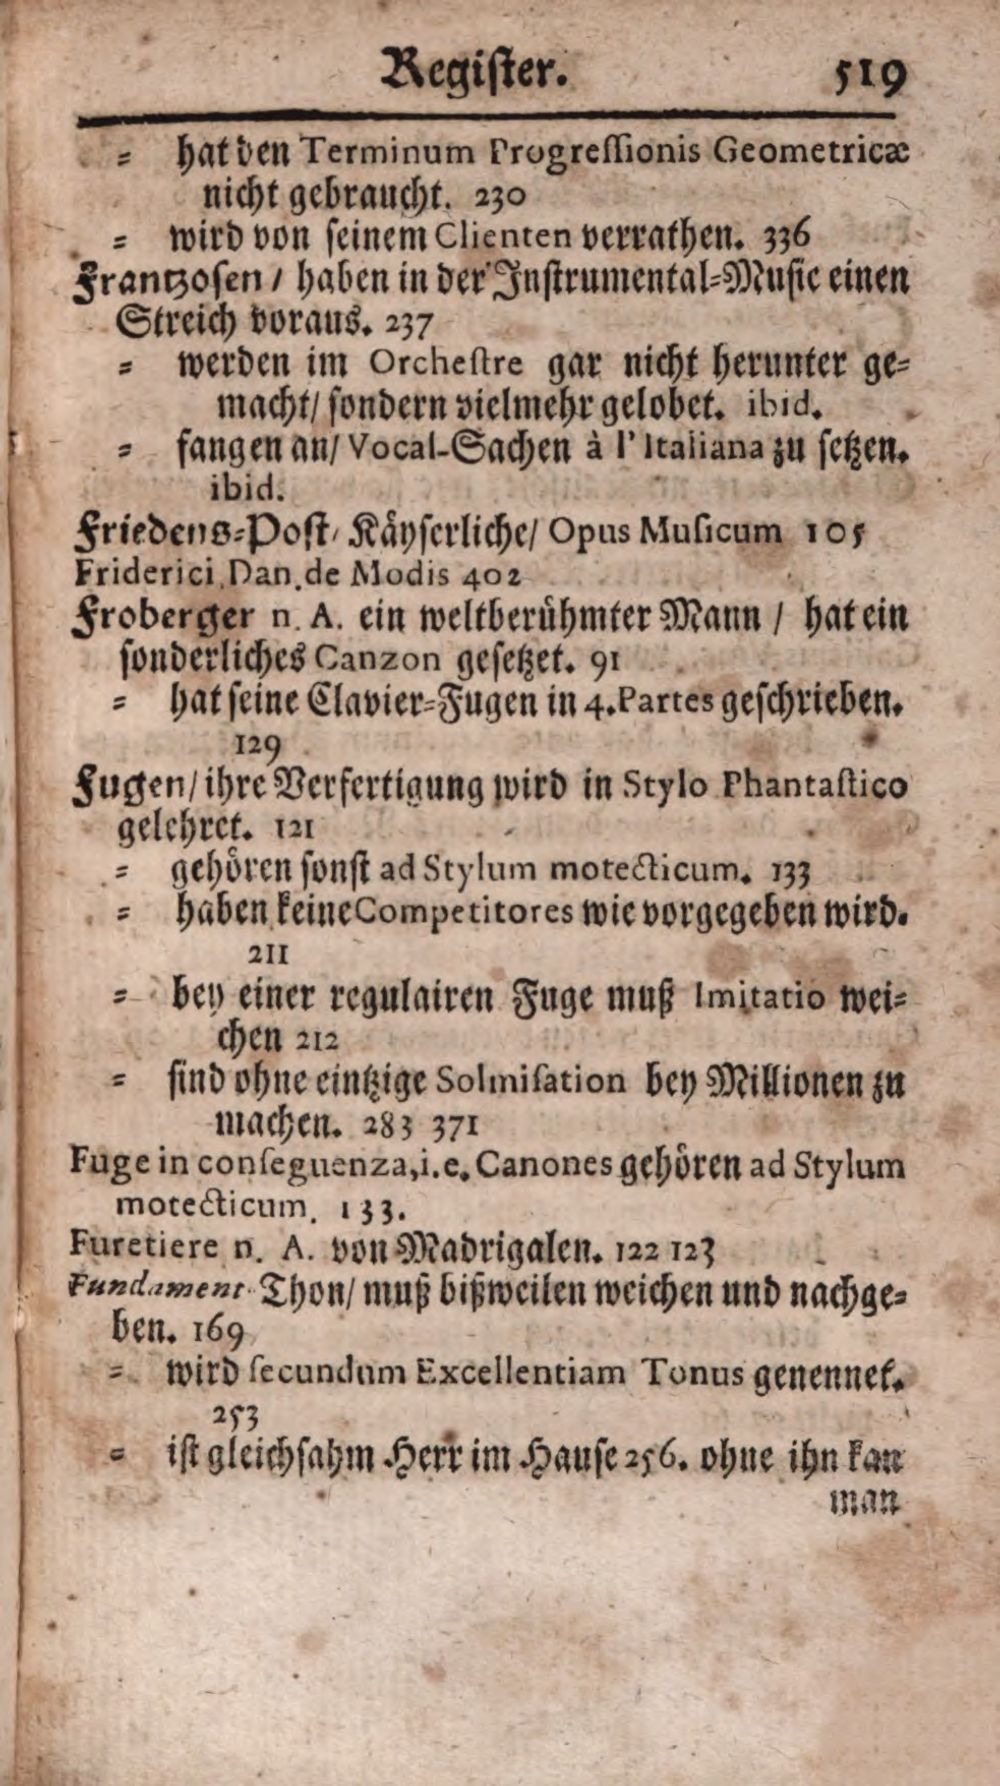 Register. 519
⸗ hat den Terminum Progreſſionis Geometricæ
nicht gebraucht. 230
⸗ wird von ſeinem Clienten verrathen. 336
Frantzoſen / haben in der Inſtrumental⸗Muſic einen
Streich voraus. 237
⸗ werden im Orcheſtre gar nicht herunter ge⸗
macht/ ſondern vielmehr gelobet. ibid.
⸗ fangen an/ Vocal-Sachen à l' Italiana zu ſetzen.
ibid.
Friedens⸗Poſt, Käyſerliche/ Opus Muſicum 105
Friderici, Dan. de Modis 402
Froberger n. A. ein weltberühmter Mann / hat ein
ſonderliches Canzon geſetzet. 91
⸗ hat ſeine Clavier⸗Fugen in 4. Partes geſchrieben.
129
Fugen/ ihre Verfertigung wird in Stylo Phantaſtico
gelehret. 121
⸗ gehören ſonſt ad Stylum motecticum. 133
⸗ haben keine Competitores wie vorgegeben wird.
211
⸗ bey einer regulairen Fuge muß Imitatio wei⸗
chen 212
⸗ ſind ohne eintzige Solmiſation bey Millionen zu
machen. 283 371
Fuge in conſeguenza, i. e. Canones gehören ad Stylum
motecticum. 133.
Furetiere n. A. von Madrigalen. 122 123
Fundament-Thon/ muß bißweilen weichen und nachge⸗
ben. 169
⸗ wird ſecundum Excellentiam Tonus genennet.
253
⸗ iſt gleichſahm Herr im Hauſe 256. ohne ihn kan
man